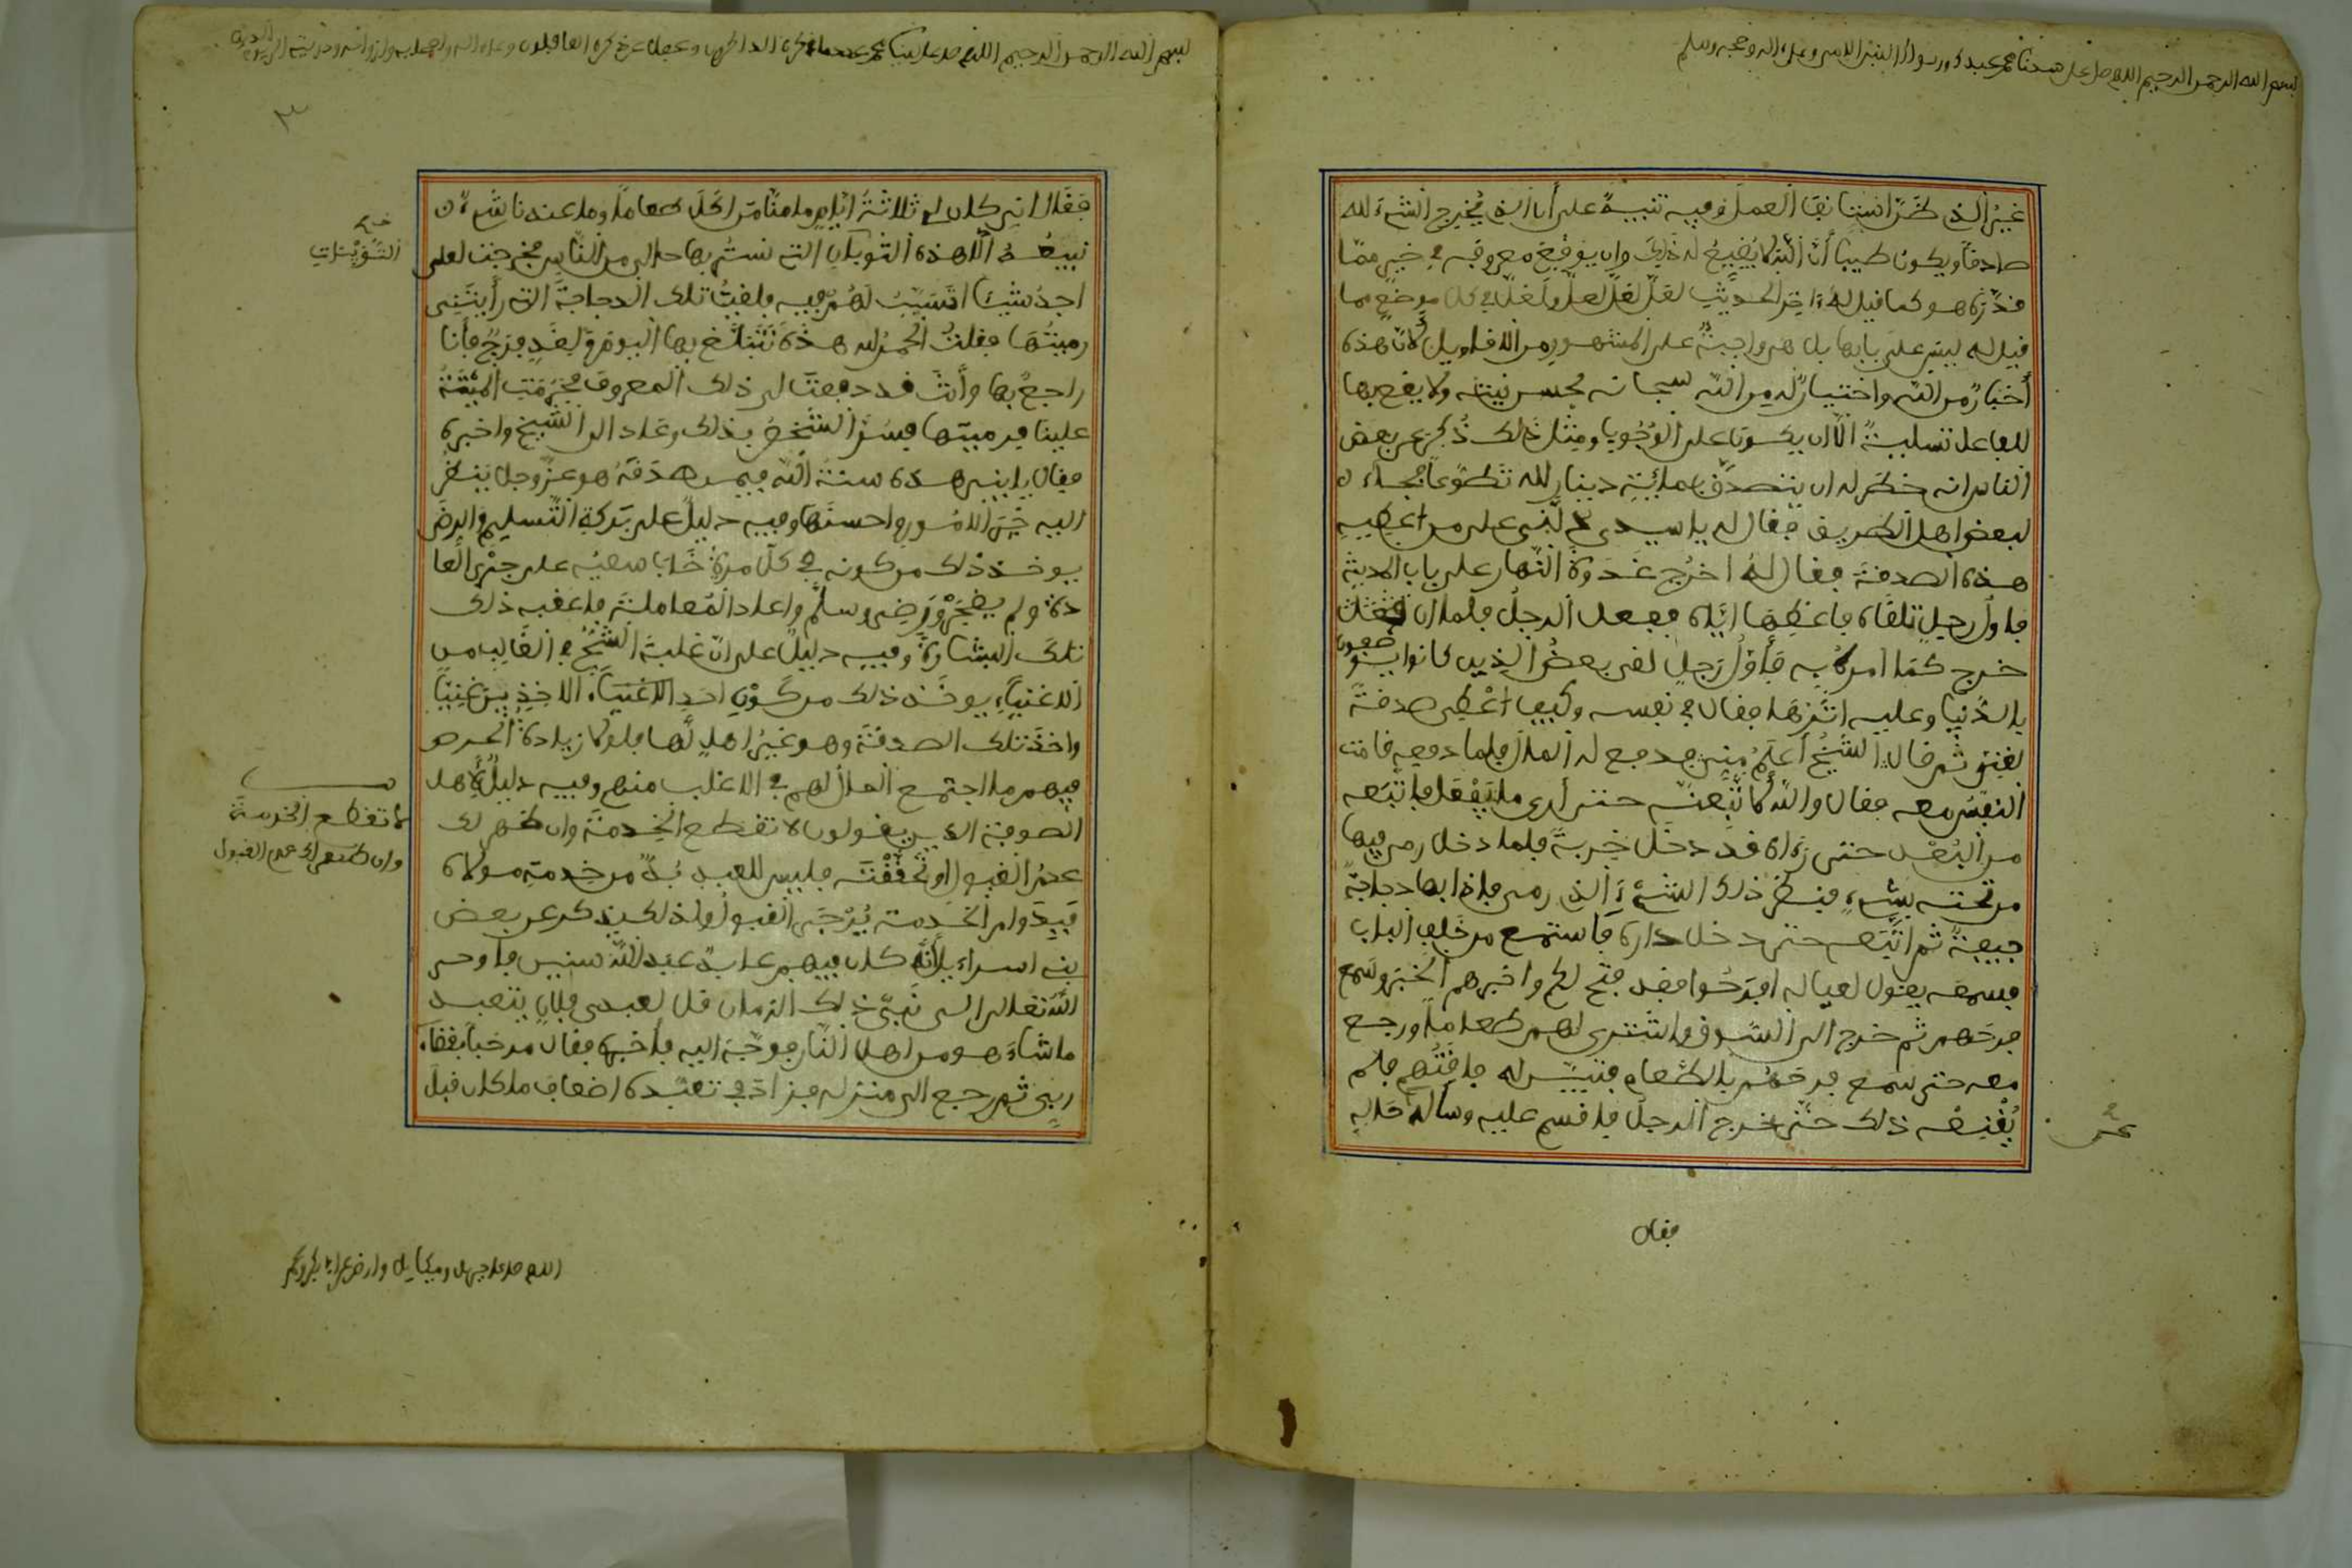 بسم الله الرحمن الرحيم اللهم صل على سيدنا محمد عبدك ورسولك النبي الامي وعلى اله وصحبه وسلم
غير الذي ظهر استأنف العمل وفيه تنبيه على أن الذي يخرج الشيء لله
صادقا ويكون طيبا أن الله لا يضيع له ذلك وان يوقع معروفه في خير مما
قدره هو كما قيل له اخر الحديث لعل لعل لعل ولعل في كل موضع مما
قيل له ليس على بابها بل هي واجبة على المشهور من الاقاويل لأن هذه
أخبار من الله واختبار له من الله سبحانه لحسن نيته ولا يقع بها
للفاعل تسلية الا ان يكون على الوجوب ومثل ذلك ذكر عن بعض
الناس انه خطر له ان يتصدق بمائة دينار لله تطوعا فجاء
لبعض اهل الطريق فقال له يا سيدي دلني على من أعطيه
هذه الصدقة فقال له اخرج غدوة النهار على باب المدينة
فاول رجل تلقاه فاعطها اياه ففعل الرجل فلما ان
خرج كما امره به فأول رجل لقي بعض الذين كانوا يوصفون
بالدنيا وعليه اثرها فقال في نفسه وكيف أعطي صدقة
لغني ثم قال الشيخ أعلم مني فدفع له المال فلما دفعه قامت
النفس معه فقال والله لأتبعنه حتى أرى ما يفعل فاتبعه
من البعد حتى رءاه قد دخل خربة فلما دخل رمى فيها
من تحته بشيء فنظر ذلك الشيء الذي رمى فاذا بها دجاجة
جيفة ثم اتبعه حتى دخل داره فاستمع من خلف الباب
فسمعه يقول لعياله افرحوا فقد فتح لكم واخبرهم الخبر وسمع
فرحهم ثم خرج الى السوق واشترى لهم طعاما ورجع
معه حتى سمع فرحهم بالطعام فتيسر له ما فتهم فلم
يقنعه ذلك حتى خرج الرجل فاقسم عليه وسأله حاله
فقال
بسم الله الرحمن الرحيم اللهم صل على سيدنا محمد عدد ما ذكره الذاكرون وغفل عن ذكره الغافلون وعلى اله واصحابه وازواجه وذريته الى يوم الدين
٣
فقال اني كان لي ثلاثة ايام ما منا من اكل طعاما وما عندنا شيء
نبيعه الا هذه الثويبات التي نستتر بها حالي من الناس فخرجت لعلي
اجد شيئا اتسبب لهم فيه فلقيت تلك الدجاجة التي رأيتني
رميتها فقلت الحمد لله هذه نتبلغ بها اليوم ولغد فرج فأنا
راجع بها وأنت قد دفعت لي ذلك المعروف فحرمت الميتة
علينا فرميتها فسر الشخص بذلك وعاد الى الشيخ واخبره
فقال يا بني هذه سنة الله فيمن صدقه هو عز وجل ينظر
اليه خير الامور واحسنها وفيه دليل على بركة التسليم والرضى
يوخذ ذلك من كونه في كل مرة خاب سعيه على جري العا
دة ولم يضجر ورضي وسلم واعاد المعاملة فاعقبه ذلك
تلك البشارة وفيه دليل على ان غلبة الشح في الغالب من
الاغنياء يوخذ ذلك من كون احد الاغنياء الاخذين غنيا
واخذ تلك الصدقة وهو غير اهل لها فلولا زيادة الحرص
فيهم ما اجتمع المال لهم في الاغلب منهم وفيه دليل لأهل
الصوفة الذين يقولون لا تقطع الخدمة وان ظهر لك
عدم القبول او تحققته فليس للعبد بد من خدمة مولاه
فبدوام الخدمة يرجى القبول ولذلك يذكر عن بعض
بني اسراءيل أنه كان فيهم عابد عبد الله سنين فاوحى
الله تعالى الى نبي ذلك الزمان قل لعبدي فلان يتعبد
ما شاء هو من اهل النار فوجه اليه فأخبره فقال مرحبا بقضاء
ربي ثم رجع الى منزله فزاد في تعبده اضعاف ما كان قبل
الثويبات
لا تقطع الخدمة
وان ظهر لك عدم القبول
اللهم صل على جبريل وميكايل وارض عن ابا بكر وعمر